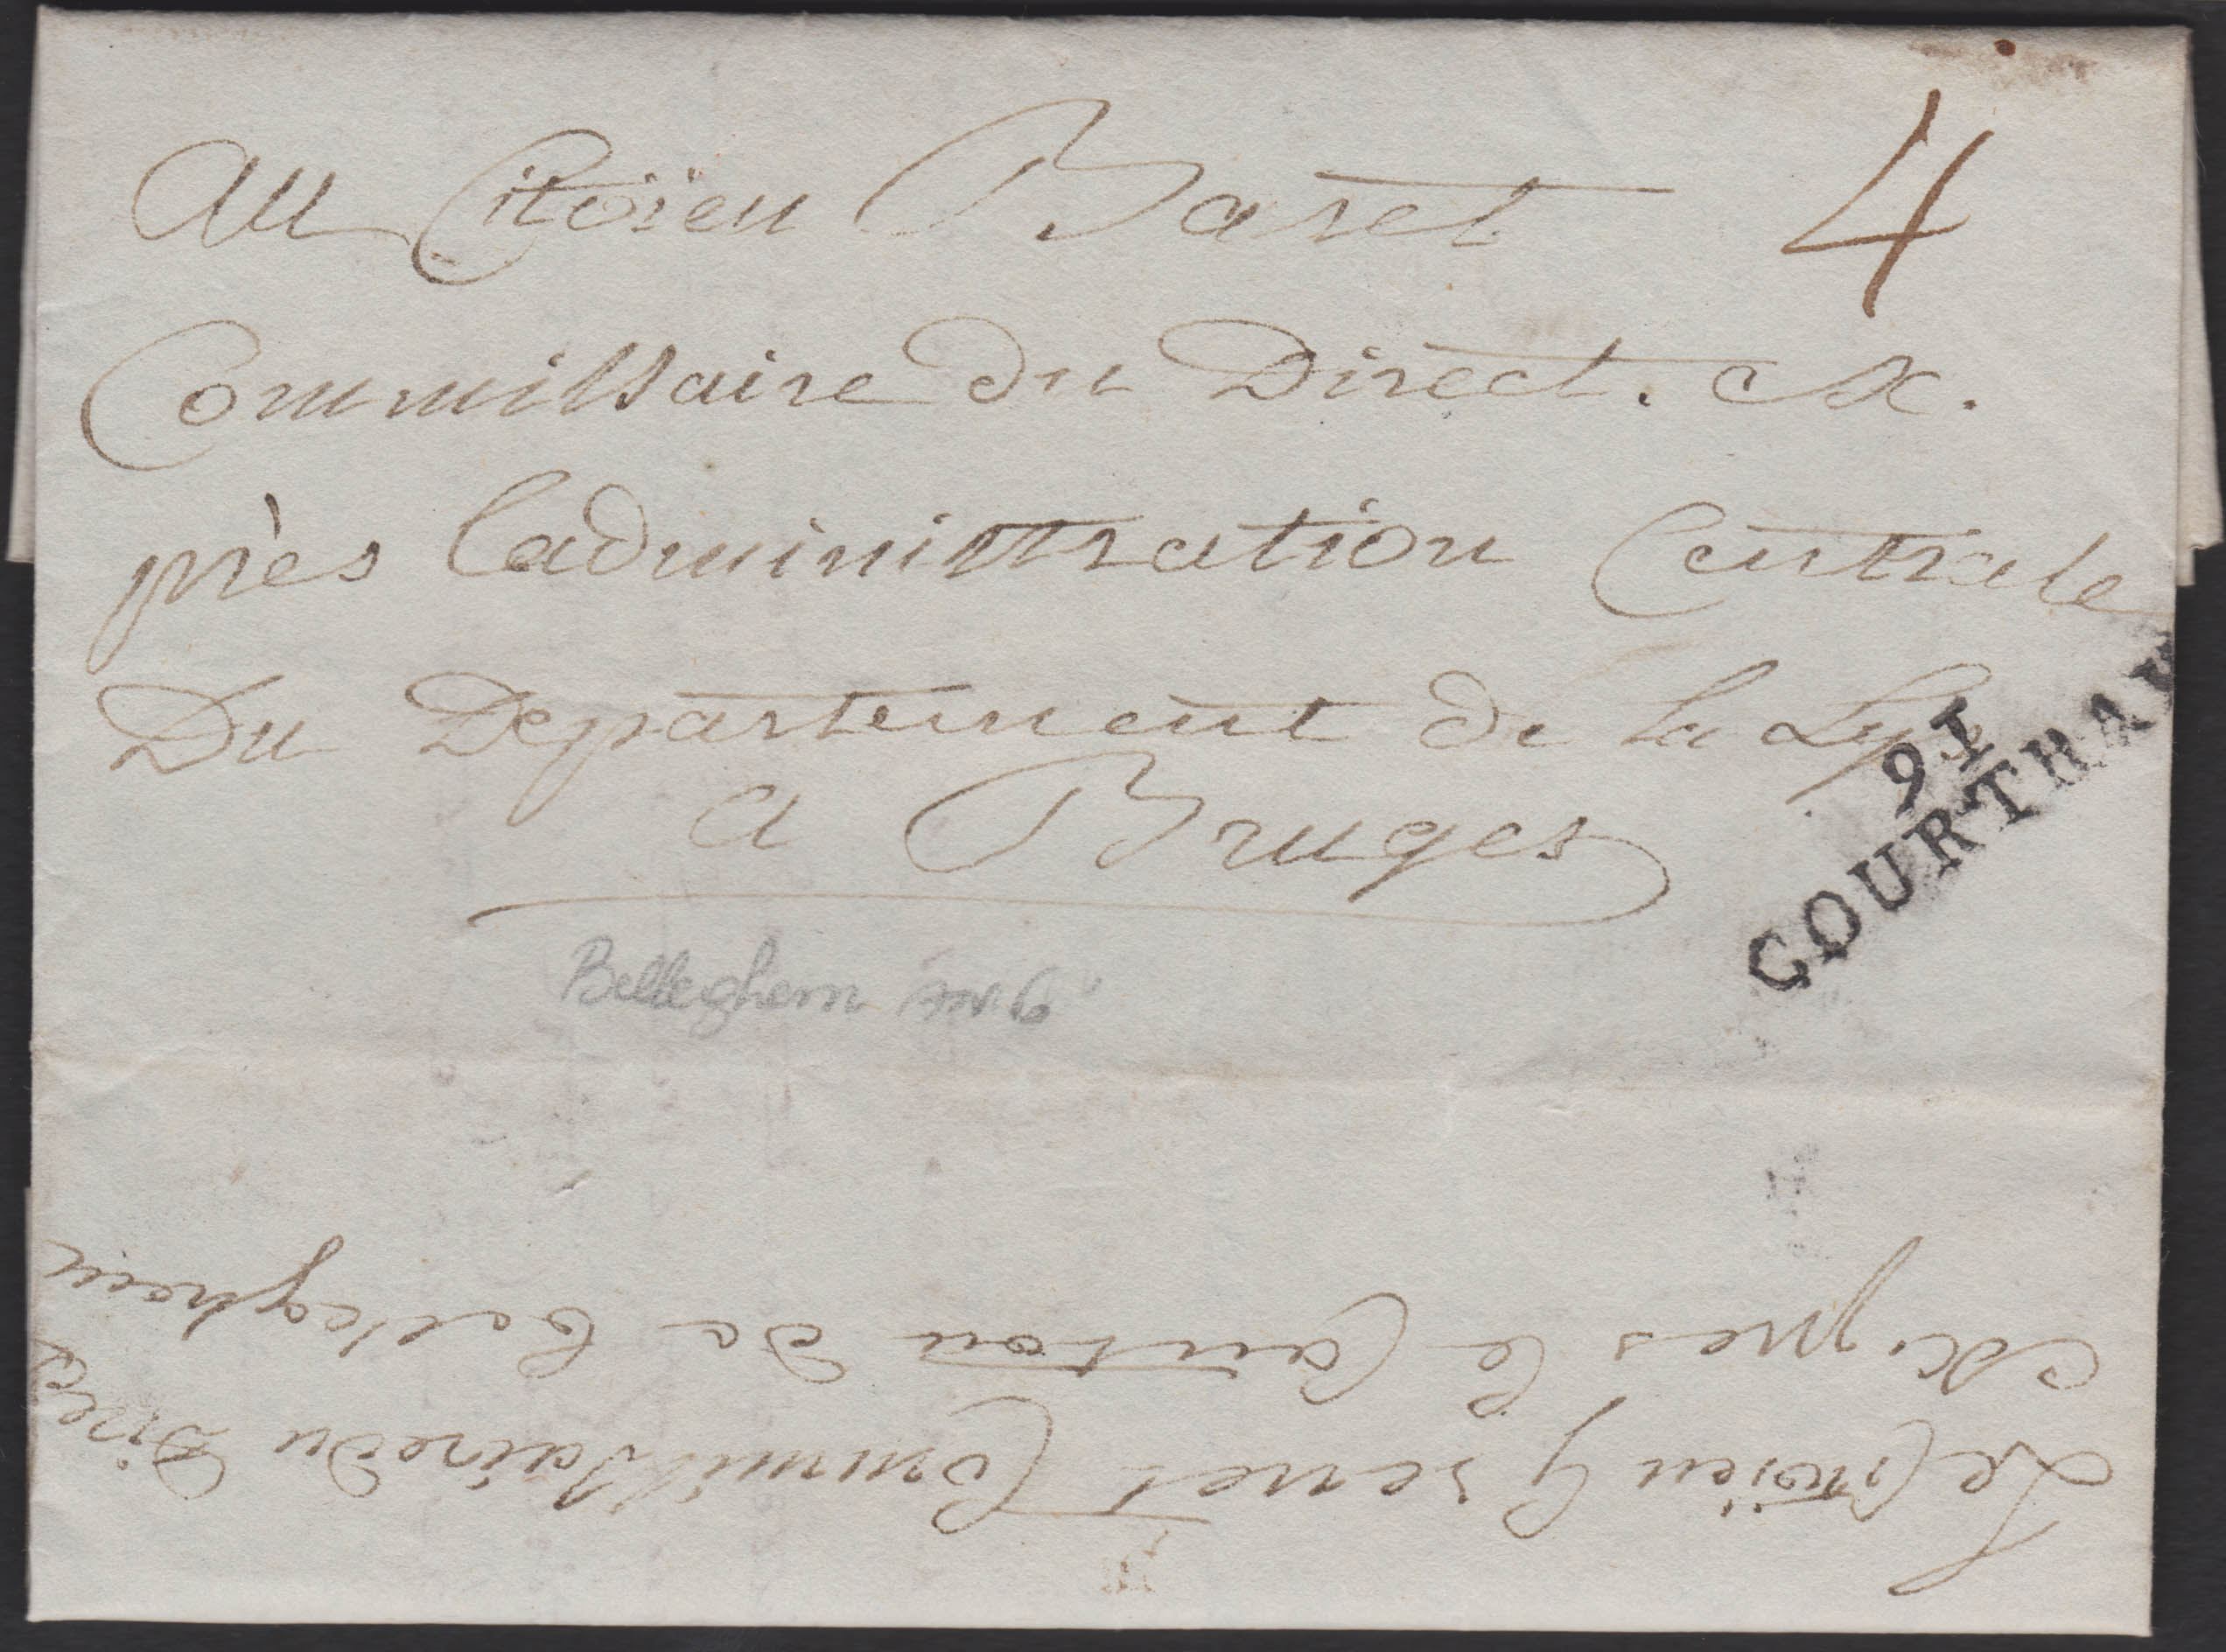 Au Citoïen Baret
4
Commissaire du Direct. ex.
près l'administration Centrale
Du Departement de la Lys
a Bruges
91
COURTRAY
Belleghem an 6
Le Citoïen Grenet Commissaire du Direct
ex. pres le Canton de belleghem